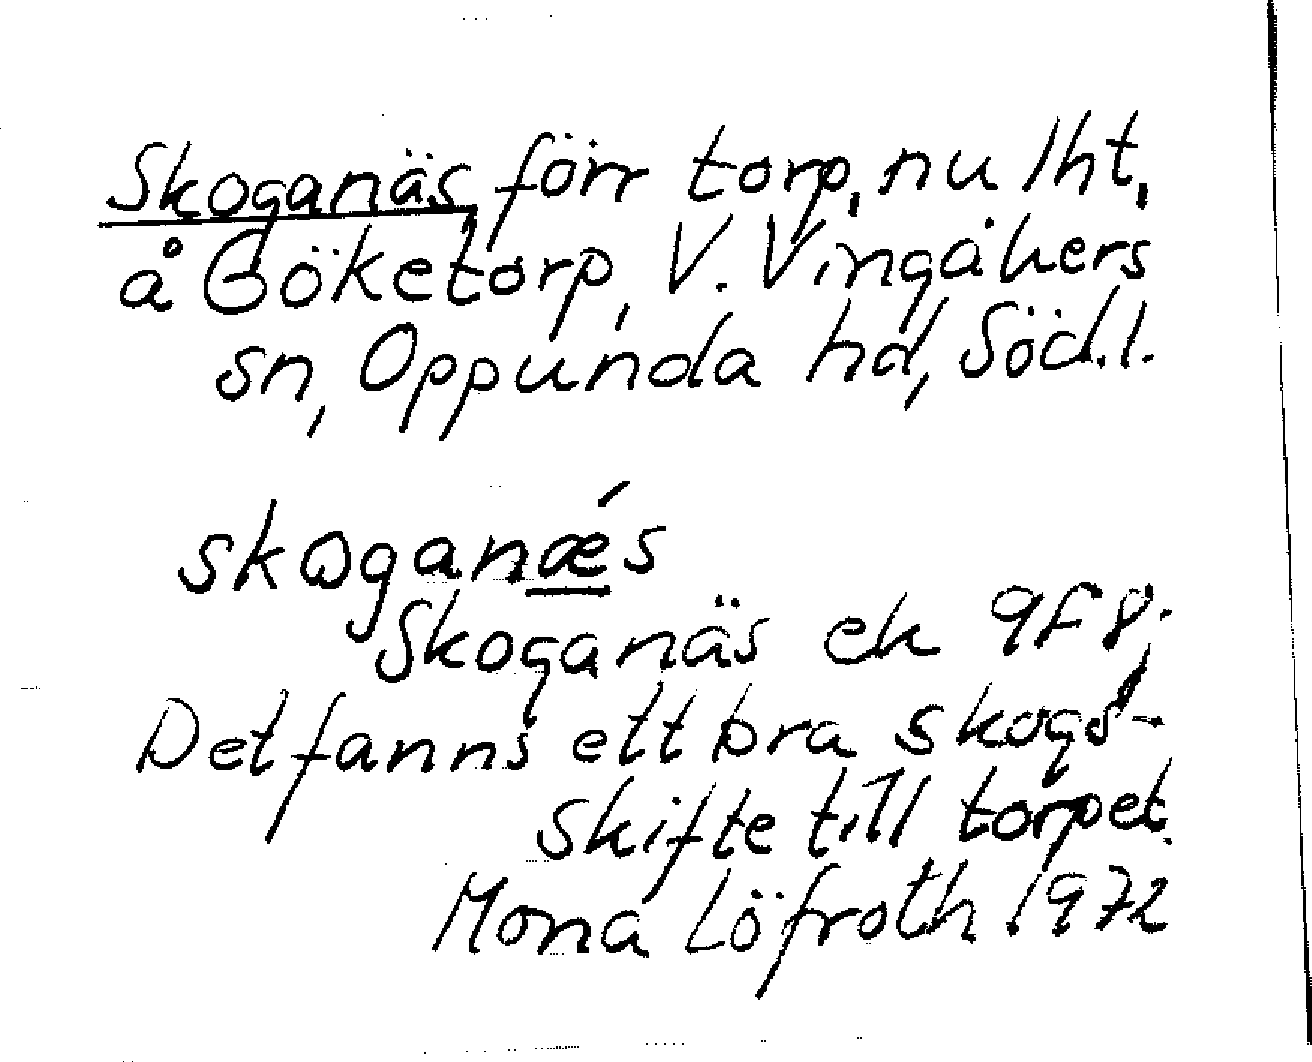 Skoganäs förr torp, nu lht,
å Göketorp, V. Vingåkers
sn, Oppunda hd, Söd.l.
skoganǽs
Skoganäs ek 9F8;
Det fanns ett bra skogs-
skifte till torpet.
Mona Löfroth 1972